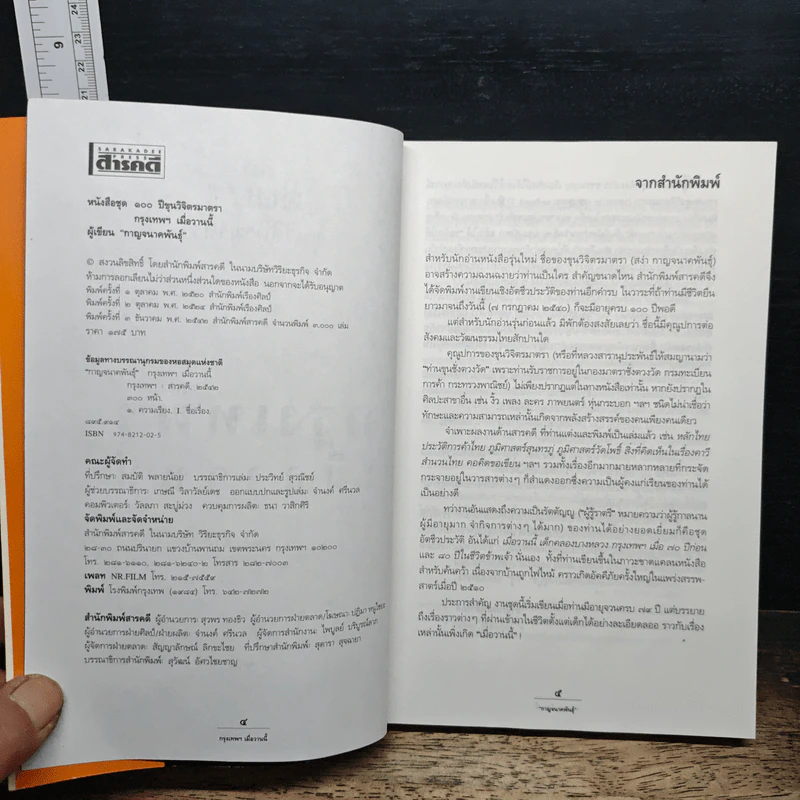 9
24
23
22
21
SARAKADEE
PRESS
สารคดี
หนังสือชุด ๑๐๐ ปีขุนวิจิตรมาตรา
กรุงเทพฯ เมื่อวานนี้
ผู้เขียน "กาญจนาคพันธุ์"
© สงวนลิขสิทธิ์ โดยสำนักพิมพ์สารคดี ในนามบริษัทวิริยะธุรกิจ จำกัด
ห้ามการลอกเลียนไม่ว่าส่วนหนึ่งส่วนใดของหนังสือ นอกจากจะได้รับอนุญาต
พิมพ์ครั้งที่ ๑ ตุลาคม พ.ศ. ๒๕๒๐ สำนักพิมพ์เรืองศิลป์
พิมพ์ครั้งที่ ๒ ตุลาคม พ.ศ. ๒๕๒๔ สำนักพิมพ์เรืองศิลป์
พิมพ์ครั้งที่ ๓ ธันวาคม พ.ศ. ๒๕๔๒ สำนักพิมพ์สารคดี จำนวนพิมพ์ ๓,๐๐๐ เล่ม
ราคา ๑๗๕ บาท
ข้อมูลทางบรรณานุกรมของหอสมุดแห่งชาติ
"กาญจนาคพันธุ์" กรุงเทพฯ เมื่อวานนี้
กรุงเทพฯ : สารคดี, ๒๕๔๒
๓๐๐ หน้า.
๑. ความเรียง. I. ชื่อเรื่อง.
๘๙๕.๙๑๔
ISBN 974-8212-02-5
คณะผู้จัดทำ
ที่ปรึกษา: สมบัติ พลายน้อย บรรณาธิการเล่ม: ประวิทย์ สุวณิชย์
ผู้ช่วยบรรณาธิการ: เกษณี วิลาวัลย์เดช ออกแบบปกและรูปเล่ม: จำนงค์ ศรีนวล
คอมพิวเตอร์: วัลลภา สะบู่ม่วง ควบคุมการผลิต: ธนา วาสิกศิริ
จัดพิมพ์และจัดจำหน่าย
สำนักพิมพ์สารคดี ในนามบริษัท วิริยะธุรกิจ จำกัด
๒๘-๓๐ ถนนปรินายก แขวงบ้านพานถม เขตพระนคร กรุงเทพฯ ๑๐๒๐๐
โทร. ๒๘๑-๖๑๑๐, ๒๘๑-๖๒๔๐-๒ โทรสาร ๒๘๒-๗๐๐๓
เพลท NR.FILM โทร. ๒๑๕-๗๕๕๙
พิมพ์ โรงพิมพ์กรุงเทพ (๑๙๘๔) โทร. ๖๔๒-๗๒๗๒
สำนักพิมพ์สารคดี ผู้อำนวยการ: สุวพร ทองธิว ผู้อำนวยการฝ่ายตลาด/โฆษณา: ปฏิมา
ผู้อำนวยการฝ่ายศิลป์/ฝ่ายผลิต: จำนงค์ ศรีนวล ผู้จัดการสำนักงาน: ไพบูลย์
ผู้จัดการฝ่ายตลาด: สัญญาลักษณ์ ลิกขะไชย ที่ปรึกษาสำนักพิมพ์: สุดารา สุจฉายา
บรรณาธิการสำนักพิมพ์: สุวัฒน์ อัศวไชยชาญ
๔
กรุงเทพฯ เมื่อวานนี้
จากสำนักพิมพ์
สำหรับนักอ่านหนังสือรุ่นใหม่ ชื่อของขุนวิจิตรมาตรา (สง่า กาญจนาคพันธุ์)
อาจสร้างความฉงนฉงายว่าท่านเป็นใคร สำคัญขนาดไหน สำนักพิมพ์สารคดีจึง
ได้จัดพิมพ์งานเขียนเชิงอัตชีวประวัติของท่านอีกคำรบ ในวาระที่ถ้าท่านมีชีวิตยืน
ยาวมาจนถึงวันนี้ (๗ กรกฎาคม ๒๕๔๐) ก็จะมีอายุครบ ๑๐๐ ปีพอดี
แต่สำหรับนักอ่านรุ่นก่อนแล้ว มิพักต้องสงสัยเลยว่า ชื่อนี้มีคุณูปการต่อ
สังคมและวัฒนธรรมไทยสักปานใด
คุณูปการของขุนวิจิตรมาตรา (หรือที่หลวงสารานุประพันธ์ให้สมญานามว่า
"ท่านขุนชั่งตวงวัด" เพราะท่านรับราชการอยู่ในกองมาตราชั่งตวงวัด กรมทะเบียน
การค้า กระทรวงพาณิชย์) ไม่เพียงปรากฏแต่ในทางหนังสือเท่านั้น หากยังปรากฏใน
ศิลปะสาขาอื่น เช่น งิ้ว เพลง ละคร ภาพยนตร์ หุ่นกระบอก ฯลฯ ชนิดไม่น่าเชื่อว่า
ทักษะและความสามารถเหล่านั้นเกิดจากพลังสร้างสรรค์ของคนเพียงคนเดียว
จำเพาะผลงานด้านสารคดี ที่ท่านแต่งและพิมพ์เป็นเล่มแล้ว เช่น หลักไทย
ประวัติการค้าไทย ภูมิศาสตร์สุนทรภู่ ภูมิศาสตร์วัดโพธิ์ สิ่งที่คิดเห็นในเรื่องคาวี
สำนวนไทย คอคิดขอเขียน ฯลฯ รวมทั้งเรื่องอีกมากมายหลากหลายที่กระจัด
กระจายอยู่ในวารสารต่างๆ ก็สำแดงออกซึ่งความเป็นผู้คงแก่เรียนของท่านได้
เป็นอย่างดี
ทว่างานอันแสดงถึงความเป็นรัตตัญญู ("ผู้รู้ราตรี" หมายความว่าผู้รู้กาลนาน
ผู้มีอายุมาก จำกิจการต่างๆ ได้มาก) ของท่านได้อย่างยอดเยี่ยมก็คือชุด
อัตชีวประวัติ อันได้แก่ เมื่อวานนี้ เด็กคลองบางหลวง กรุงเทพฯ เมื่อ ๗๐ ปีก่อน
และ ๘๐ ปีในชีวิตข้าพเจ้า นั่นเอง ทั้งที่ท่านเขียนขึ้นในภาวะขาดแคลนหนังสือ
สำหรับค้นคว้า เนื่องจากบ้านถูกไฟไหม้ คราวเกิดอัคคีภัยครั้งใหญ่ในแพร่งสรรพ-
ศาสตร์เมื่อปี ๒๕๑๐
ประการสำคัญ งานชุดนี้เริ่มเขียนเมื่อท่านมีอายุจวนครบ ๗๓ ปี แต่บรรยาย
ถึงเรื่องราวต่างๆ ที่ผ่านเข้ามาในชีวิตตั้งแต่เด็กได้อย่างละเอียดลออ ราวกับเรื่อง
เหล่านั้นเพิ่งเกิด "เมื่อวานนี้" !
๕
"กาญจนาคพันธุ์"